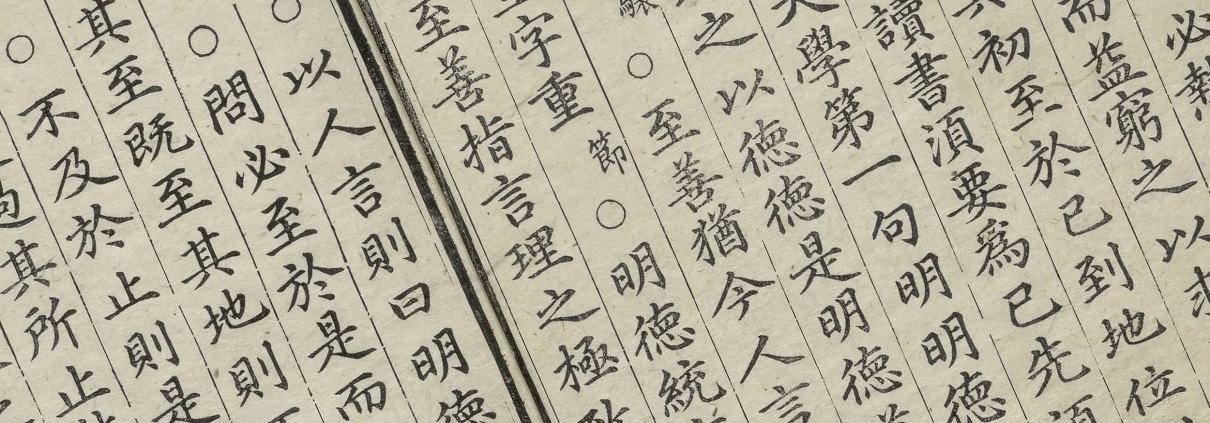 必
而益窮之以求
其初至於已到地位
讀書須要爲己先須
大學第一句明明德
之以德德是明德
○至善猶今人言
字重節○明德統
至善指言理之極
○以人言則曰明德
○問必至於是而
其至既至其地則
○不及於止則是
過其所止